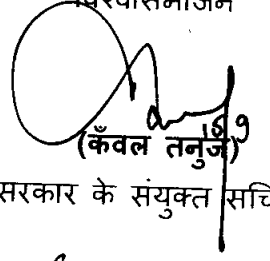 विश्वासभाजन
15/9
(कँवल तनुज)
सरकार के संयुक्त सचि